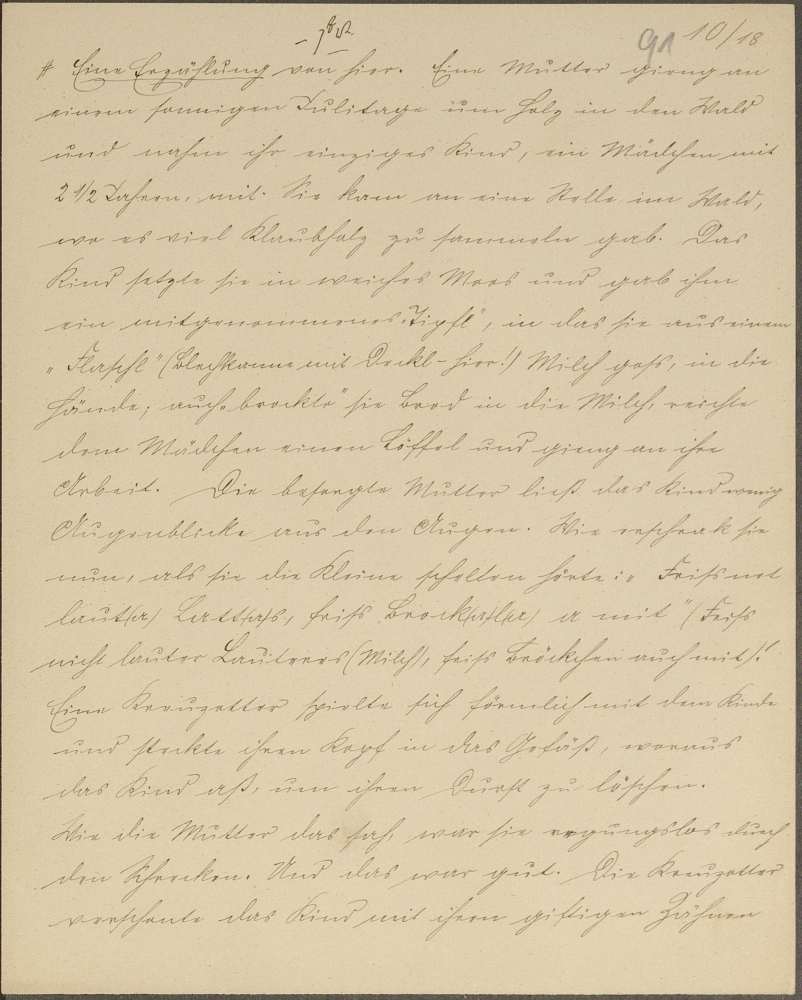 91 10/18
# Eine Erzählung von hier. Eine Mutter gieng an
einem sonnigen Julitage um Holz in den Wald
und nahm ihr einziges Kind, ein Mädchen mit
2 1/2 Jahren, mit. Sie kam an eine Stelle im Wald,
wo es viel Klaubholz zu sammeln gab. Das
Kind setzte sie in weiches Moos und gab ihm
ein mitgenommenes „Tipfl", in das sie aus einem
„Flaschl" (Blechkanne mit Deckl - hier!) Milch goss, in die
Hände; auch „brockte" sie Brod in die Milch, reichte
dem Mädchen einen Löffel und gieng an ihre
Arbeit. Die besorgte Mutter ließ das Kind wenig
Augenblicke aus den Augen. Wie erschrak sie
nun, als sie die Kleine schelten hörte: „Friss net
laut(a) Latt(a)s, friss Brock(a)l(a) a mit" (Friss
nicht lauter Lauteres (Milch), friss Bröckchen auch mit)!
Eine Kreuzotter spielte sich förmlich mit dem Kinde
und steckte ihren Kopf in das Gefäß, woraus
das Kind aß, um ihren Durst zu löschen.
Wie die Mutter das sah, war sie regungslos durch
den Schrecken. Und das war gut. Die Kreuzotter
verschonte das Kind mit ihren giftigen Zähnen